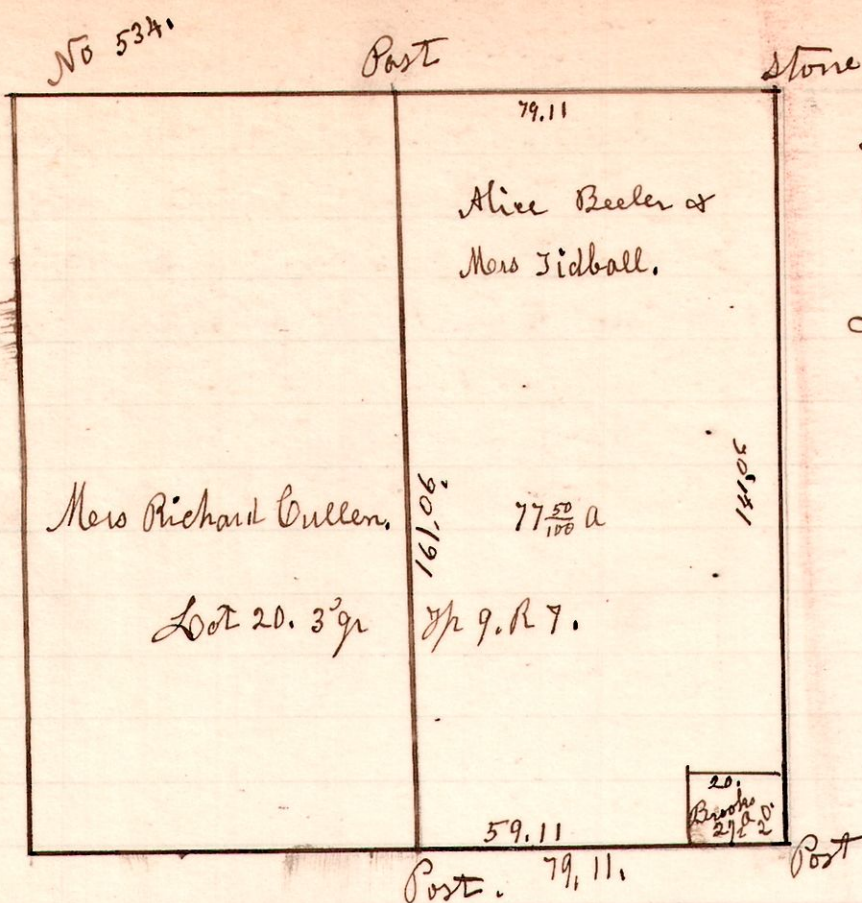 No 534.
Post
Stone
79.11
Alice Beeler &
Mrs Tidball.
Mrs Richard Cullen.
161.06
77 50/100 a
Lot 20. 3d qr Tp 9. R 7.
20.
Brooks
59.11
79,11.
Post.
Post